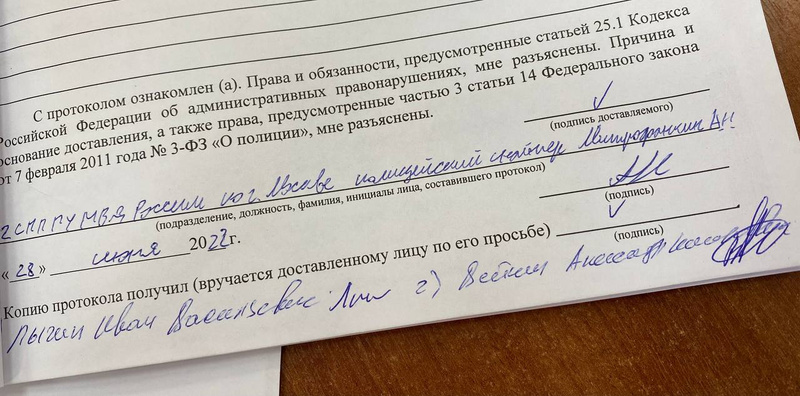 С протоколом ознакомлен (а). Права и обязанности, предусмотренные статьей 25.1 Кодекса
Российской Федерации об административных правонарушениях, мне разъяснены. Причина и
основание доставления, а также права, предусмотренные частью 3 статьи 14 Федерального закона
от 7 февраля 2011 года № 3-ФЗ «О полиции», мне разъяснены.
(подпись доставляемого)
МВД России по г. Москве полицейский Митрофанкин АН
(подразделение, должность, фамилия, инициалы лица, составившего протокол)
(подпись)
« 28 » июня 2022г.
Копию протокола получил (вручается доставленному лицу по его просьбе)
(подпись)
Иван Васильевич